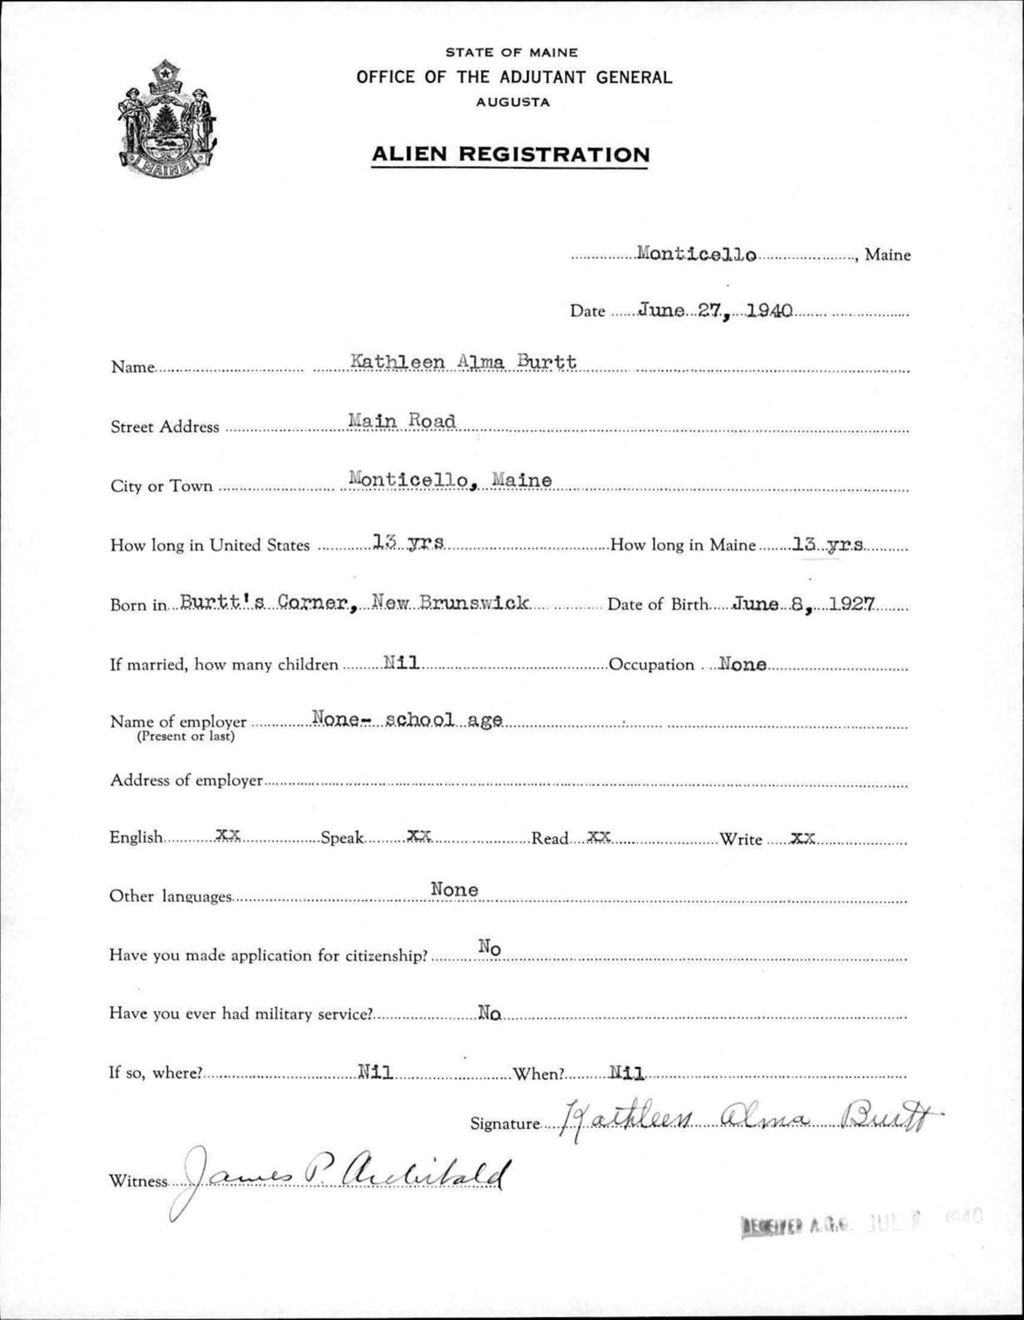 STATE OF MAINE
OFFICE OF THE ADJUTANT GENERAL
AUGUSTA
ALIEN REGISTRATION
MAINE
Monticello, Maine
Date June 27, 1940
Name Kathleen Alma Burtt
Street Address Main Road
City or Town Monticello, Maine
How long in United States 13 yrs How long in Maine 13 yrs
Born in Burtt's Corner, New Brunswick Date of Birth June 8, 1927
If married, how many children Nil Occupation None
Name of employer None- school age
(Present or last)
Address of employer
English XX Speak XX Read XX Write XX
Other languages None
Have you made application for citizenship? No
Have you ever had military service? No
If so, where? Nil When? Nil
Signature Kathleen Alma Burtt
Witness James P. Archibald
RECEIVED A.G.O. JUL 1940